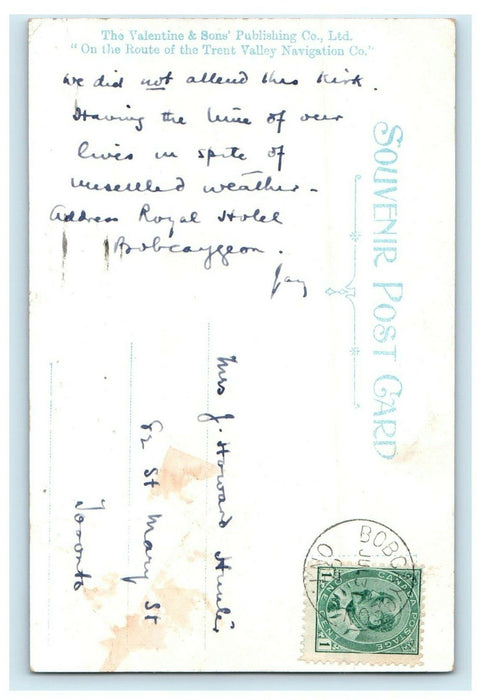 The Valentine & Sons' Publishing Co., Ltd.
"On the Route of the Trent Valley Navigation Co."
We did not attend this Kirk.
Having the time of our
lives in spite of
unsettled weather -
Address Royal Hotel
Bobcaygeon.
Jay
SOUVENIR POST CARD
Mrs J. Howard Hunter
82 St Mary St
Toronto
BOBC
JU
ONE CENT
CANADA POSTAGE
1
1